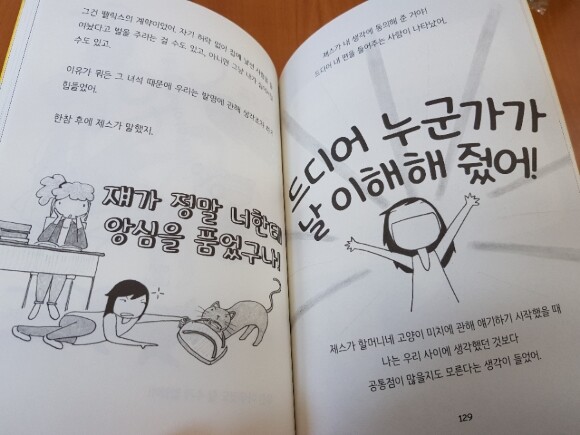 그건 펠릭스의 계략이었어. 자기 허락 없이 집에
수도 있고, 아니면 그냥 내가
수도 있고.
이유가 뭐든 그 녀석 때문에 우리는 발명에 관해
힘들었어.
한참 후에 제스가 말했지.
쟤가 정말 너한테
앙심을 품었구나!
제스가 내 생각에 동의해 준 거야!
드디어 내 편을 들어주는 사람이 나타났어.
드디어 누군가가
날 이해해 줬어!
제스가 할머니네 고양이 미치에 관해 얘기하기 시작했을 때
나는 우리 사이에 생각했던 것보다
공통점이 많을지도 모른다는 생각이 들었어.
129